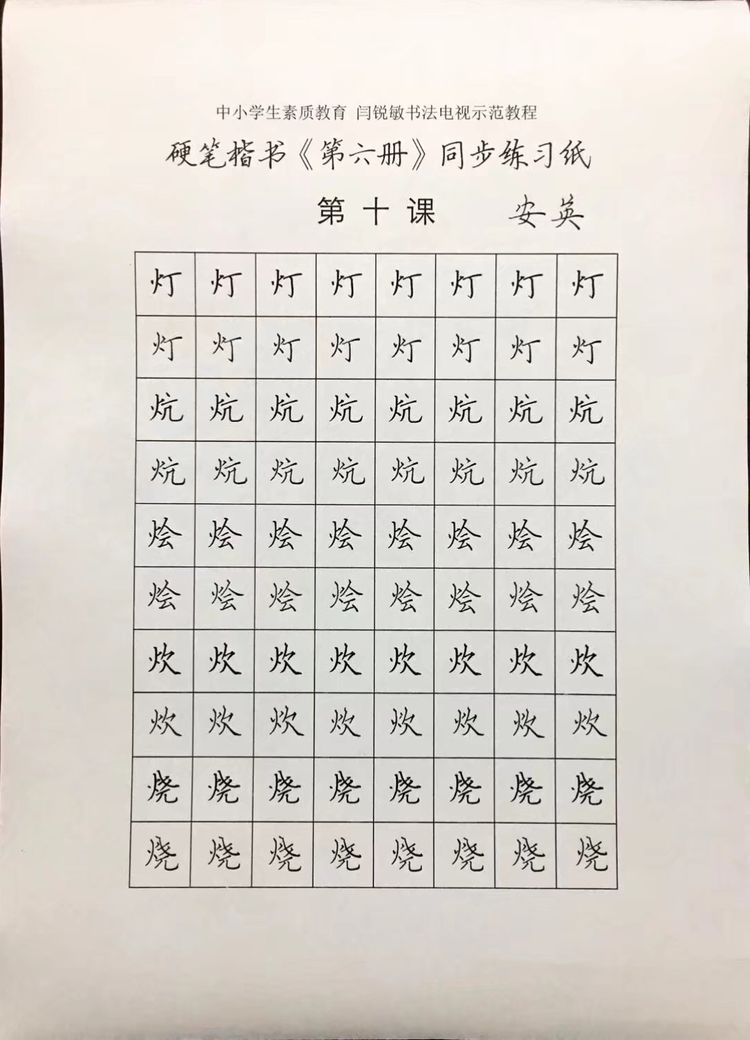 中小学生素质教育 闫锐敏书法电视示范教程
硬笔楷书《第六册》同步练习纸
第十课 安英
灯 灯 灯 灯 灯 灯 灯 灯
灯 灯 灯 灯 灯 灯 灯 灯
炕 炕 炕 炕 炕 炕 炕 炕
炕 炕 炕 炕 炕 炕 炕 炕
烩 烩 烩 烩 烩 烩 烩 烩
烩 烩 烩 烩 烩 烩 烩 烩
炊 炊 炊 炊 炊 炊 炊 炊
炊 炊 炊 炊 炊 炊 炊 炊
烧 烧 烧 烧 烧 烧 烧 烧
烧 烧 烧 烧 烧 烧 烧 烧